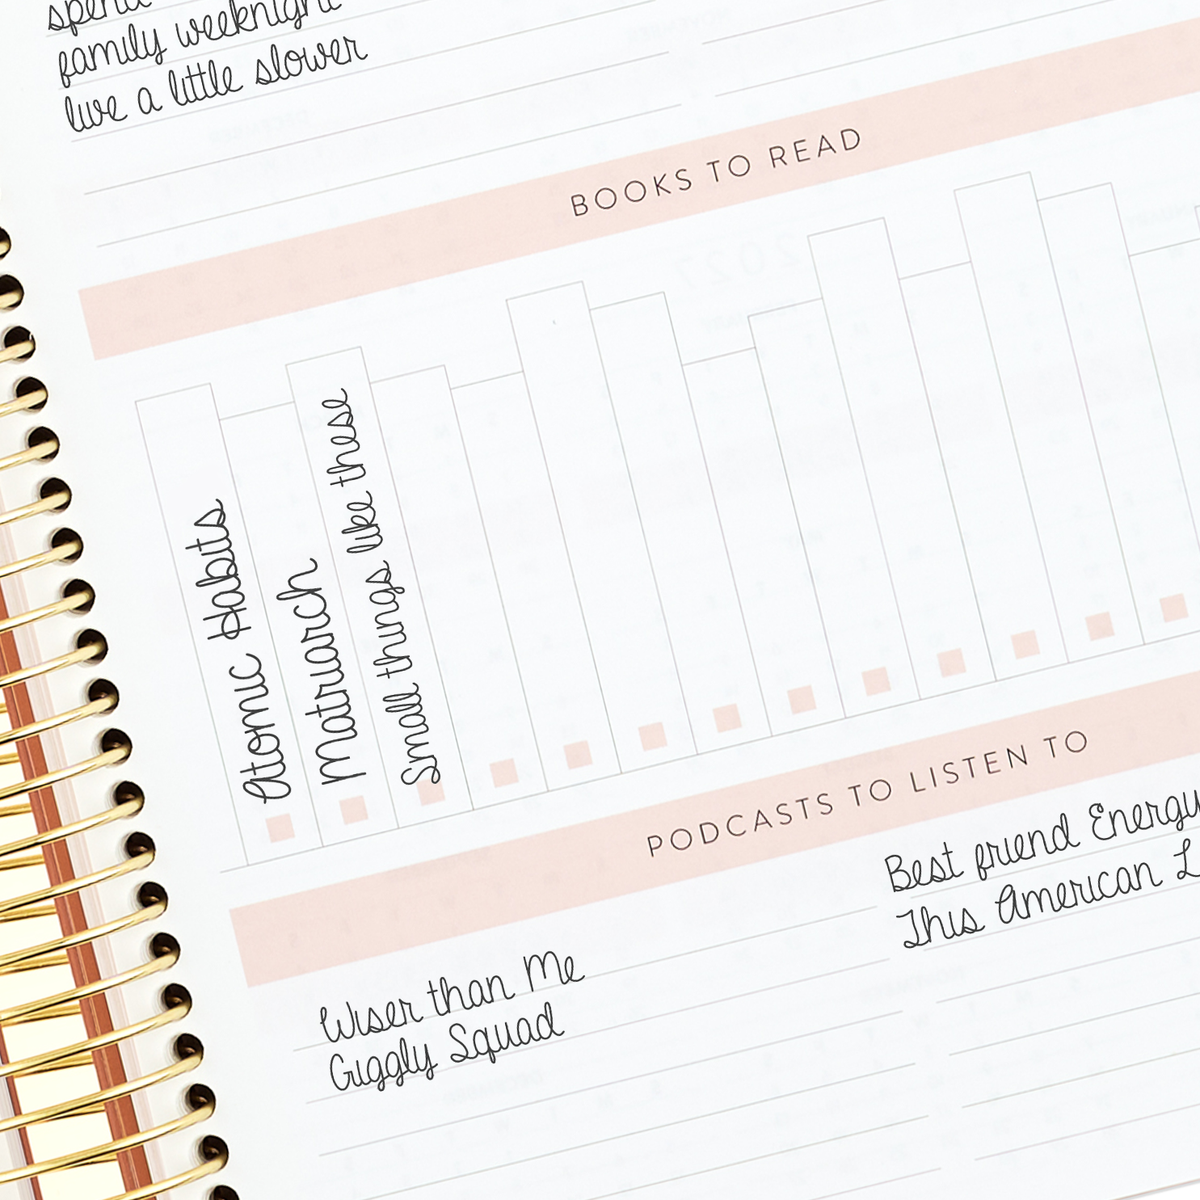 spend
family weeknight
live a little slower
BOOKS TO READ
Atomic Habits
Matriarch
Small things like these
PODCASTS TO LISTEN TO
Wiser than Me
Giggly Squad
Best friend Energy
This American L